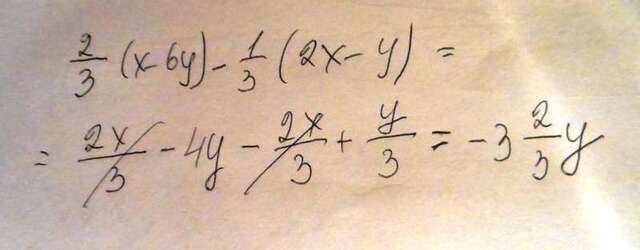 2/3 (x-6y) - 1/3 (2x-y) =
= 2x/3 - 4y - 2x/3 + y/3 = -3 2/3 y